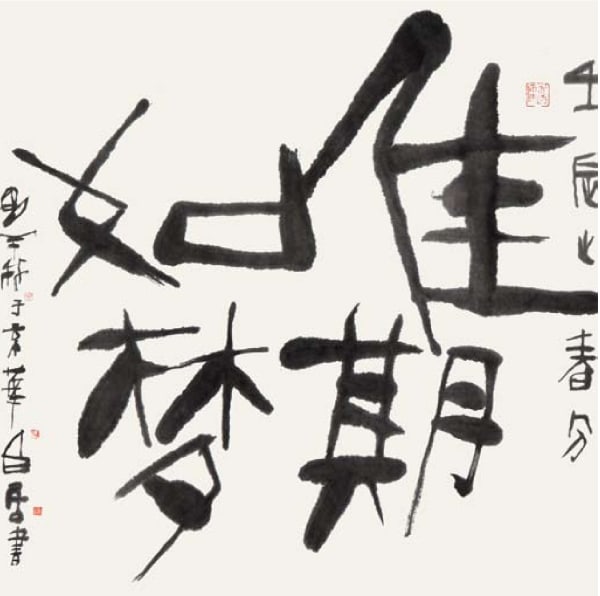 壬辰之春分
佳期
如梦
于京华
书